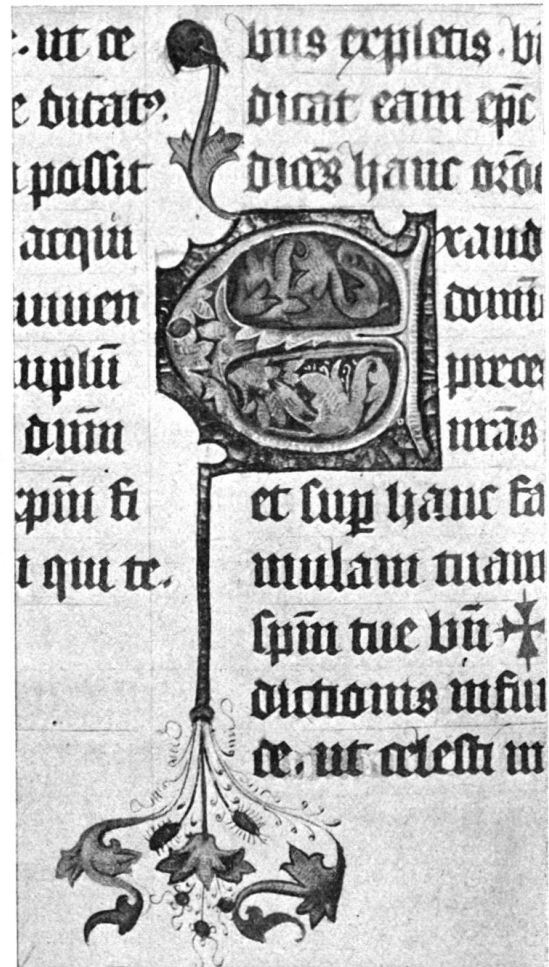 . ut ce
e ditatꝰ.
possit
acqui
uiuen
uplū
dum̄
xp̄m fi
qui te.
bus expletis . b
dicat eam ep̄c
dicēs hanc or̄o
Exaud
domi
preces
nr̄as
et suꝑ hanc fa
mulam tuam
sp̄m tue bn̄ ✠
dictionis infun
de. ut celesti